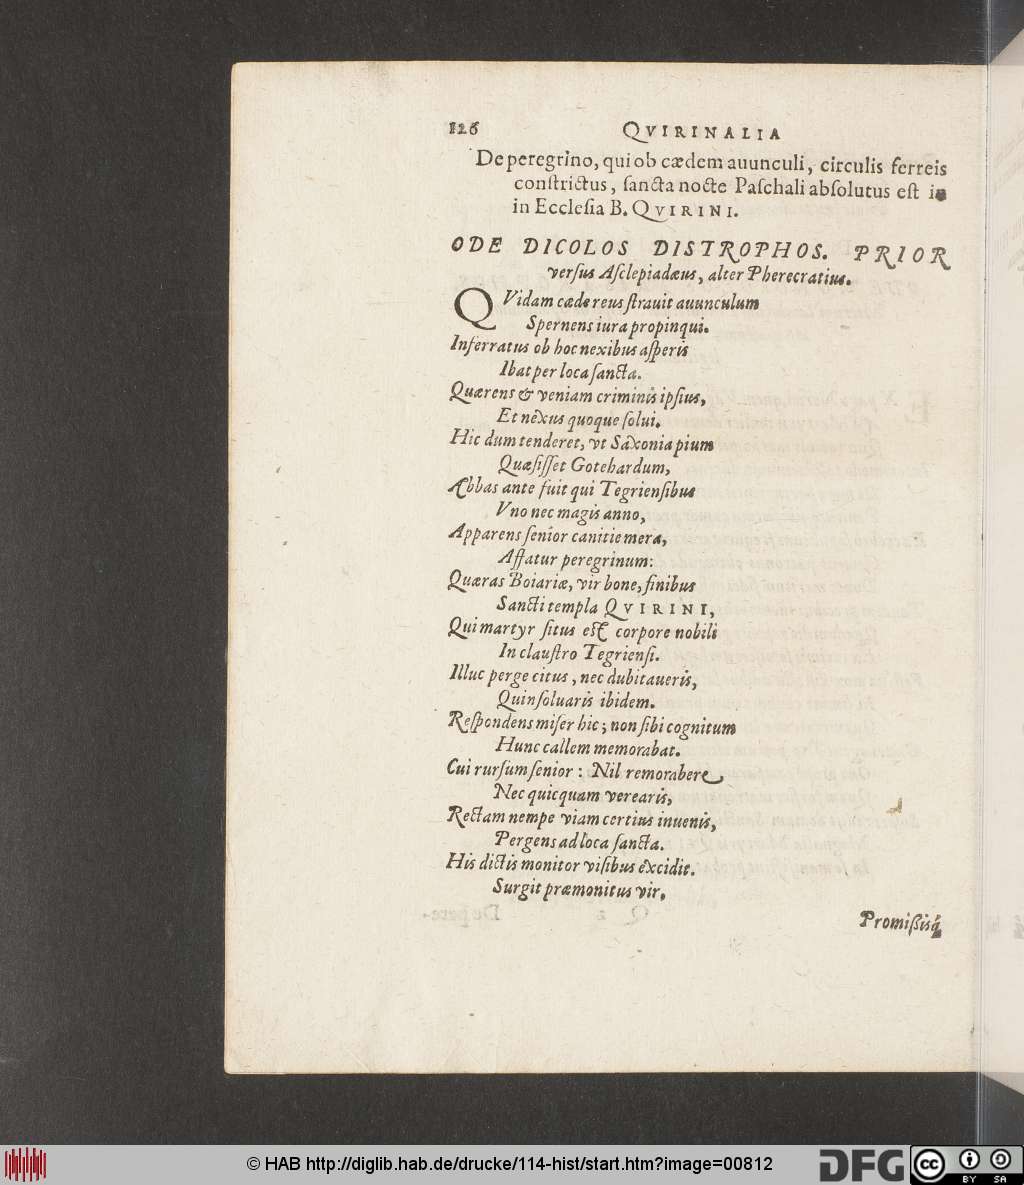 126 QVIRINALIA
De peregrino, qui ob cædem auunculi, circulis ferreis
constrictus, sancta nocte Paschali absolutus est in
in Ecclesia B. QVIRINI.
ODE DICOLOS DISTROPHOS. PRIOR
versus Asclepiadæus, alter Pherecratius.
QVidam cæde reus strauit auunculum
Spernens iura propinqui.
Inferratus ob hoc nexibus asperis
Ibat per loca sancta.
Quærens & veniam criminis ipsius,
Et nexus quoque solui.
Hic dum tenderet, vt Saxonia pium
Quæsisset Gotehardum,
Abbas ante fuit qui Tegriensibus
Vno nec magis anno,
Apparens senior canitie mera,
Affatur peregrinum:
Quæras Boiariæ, vir bone, finibus
Sancti templa QVIRINI,
Qui martyr situs est corpore nobili
In claustro Tegriensi.
Illuc perge citus, nec dubitaueris,
Quin soluaris ibidem.
Respondens miser hic; non sibi cognitum
Hunc callem memorabat.
Cui rursum senior: Nil remorabere
Nec quicquam verearis,
Rectam nempe viam certius inuenis,
Pergens ad loca sancta.
His dictis monitor visibus excidit.
Surgit præmonitus vir,
Promissisq́;
© HAB http://diglib.hab.de/drucke/114-hist/start.htm?image=00812
DFG
cc BY SA